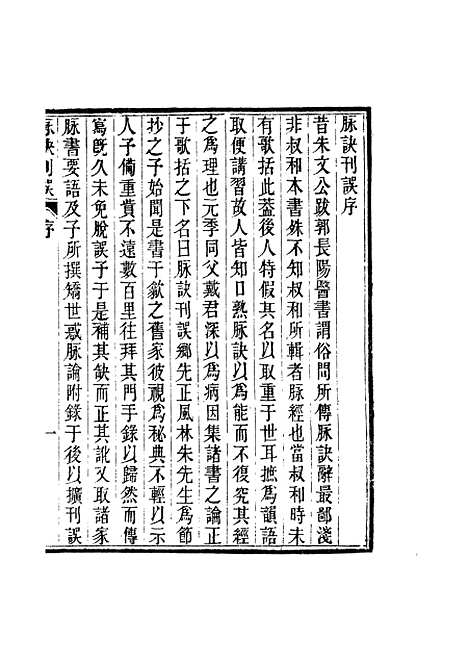 脉訣刊誤序
昔朱文公跋郭長陽醫書謂俗間所傳脉訣辭最鄙淺
非叔和本書殊不知叔和所輯者脉經也當叔和時未
有歌括此葢後人特假其名以取重于世耳摭爲韻語
取便講習故人皆知口熟脉訣以爲能而不復究其經
之爲理也元季同父戴君深以爲病因集諸書之論正
于歌括之下名曰脉訣刊誤鄉先正風林朱先生爲節
抄之予始聞是書于歙之舊家彼視爲秘典不輕以示
人予僃重貲不遠數百里往拜其門手錄以歸然而傳
寫旣久未免脫誤予于是補其缺而正其訛又取諸家
脉書要語及予所撰矯世惑脉論附錄于後以擴刊誤
脉訣刊誤 序 一